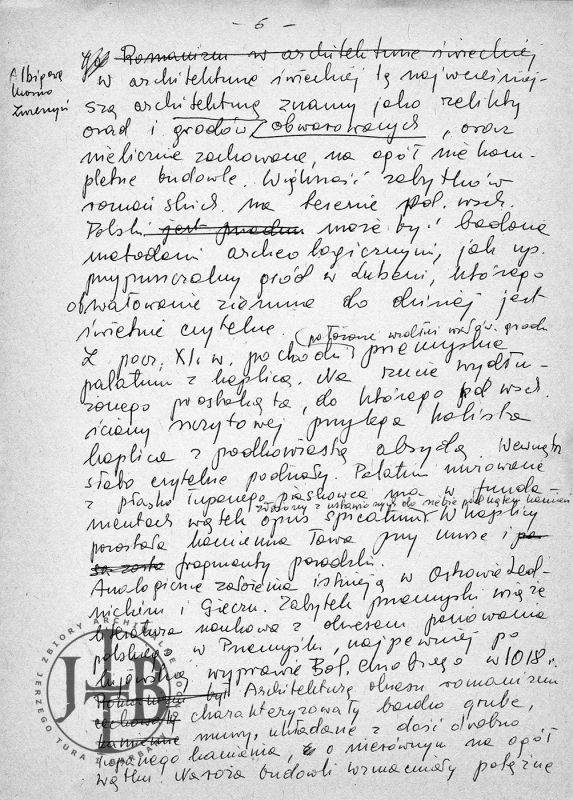 - 6 -
Albigowa
Zwierzyń
Romanizm w architekturze świeckiej
w architekturze świeckiej tą najwcześniej-
szą architekturę znamy jako relikty
osad i grodów obwarowanych, oraz
nielicznie zachowane, na ogół niekom-
pletne budowle. Większość zabytków
romańskich na terenie płd. wsch.
Polski może być badana
metodami archeologicznymi, jak np.
przypuszczalny gród w Lubeni, którego
obwałowanie ziemne do dzisiaj jest
świetnie czytelne.
(położone wzdłuż grodu
Z pocz. XI. w. pochodzi przemyskie
palatium z kaplicą. Na rzucie wydłu-
żonego prostokąta, do którego od wsch.
ściany szczytowej przylega kolista
kaplica z podkowiastą absydą. Wewnątrz
słabo czytelne podziały. Palatium murowane
z płasko łupanego piaskowca ma w funda-
złożony z ustawionych do siebie pod kątem kamieni
mentach wątek opus spicatum. W kaplicy
pozostała kamienna ława przy murze i
fragmenty posadzki.
Analogiczne założenia istnieją w Ostrowie Led-
nickim i Gieczu. Zabytek przemyski wiąże
literatura naukowa z okresem panowania
polskiego w Przemyślu, najpewniej po
kijowskiej wyprawie Bol. Chrobrego w 1018 r.
Architekturę okresu romanizmu
charakteryzowały bardzo grube,
kamienne mury, układane z dość drobno
łupanego kamienia, o nierównym na ogół
wątku. Naroża budowli wzmacniały potężne
ZBIORY ARCHIWALNE
JERZEGO TURA
JHB